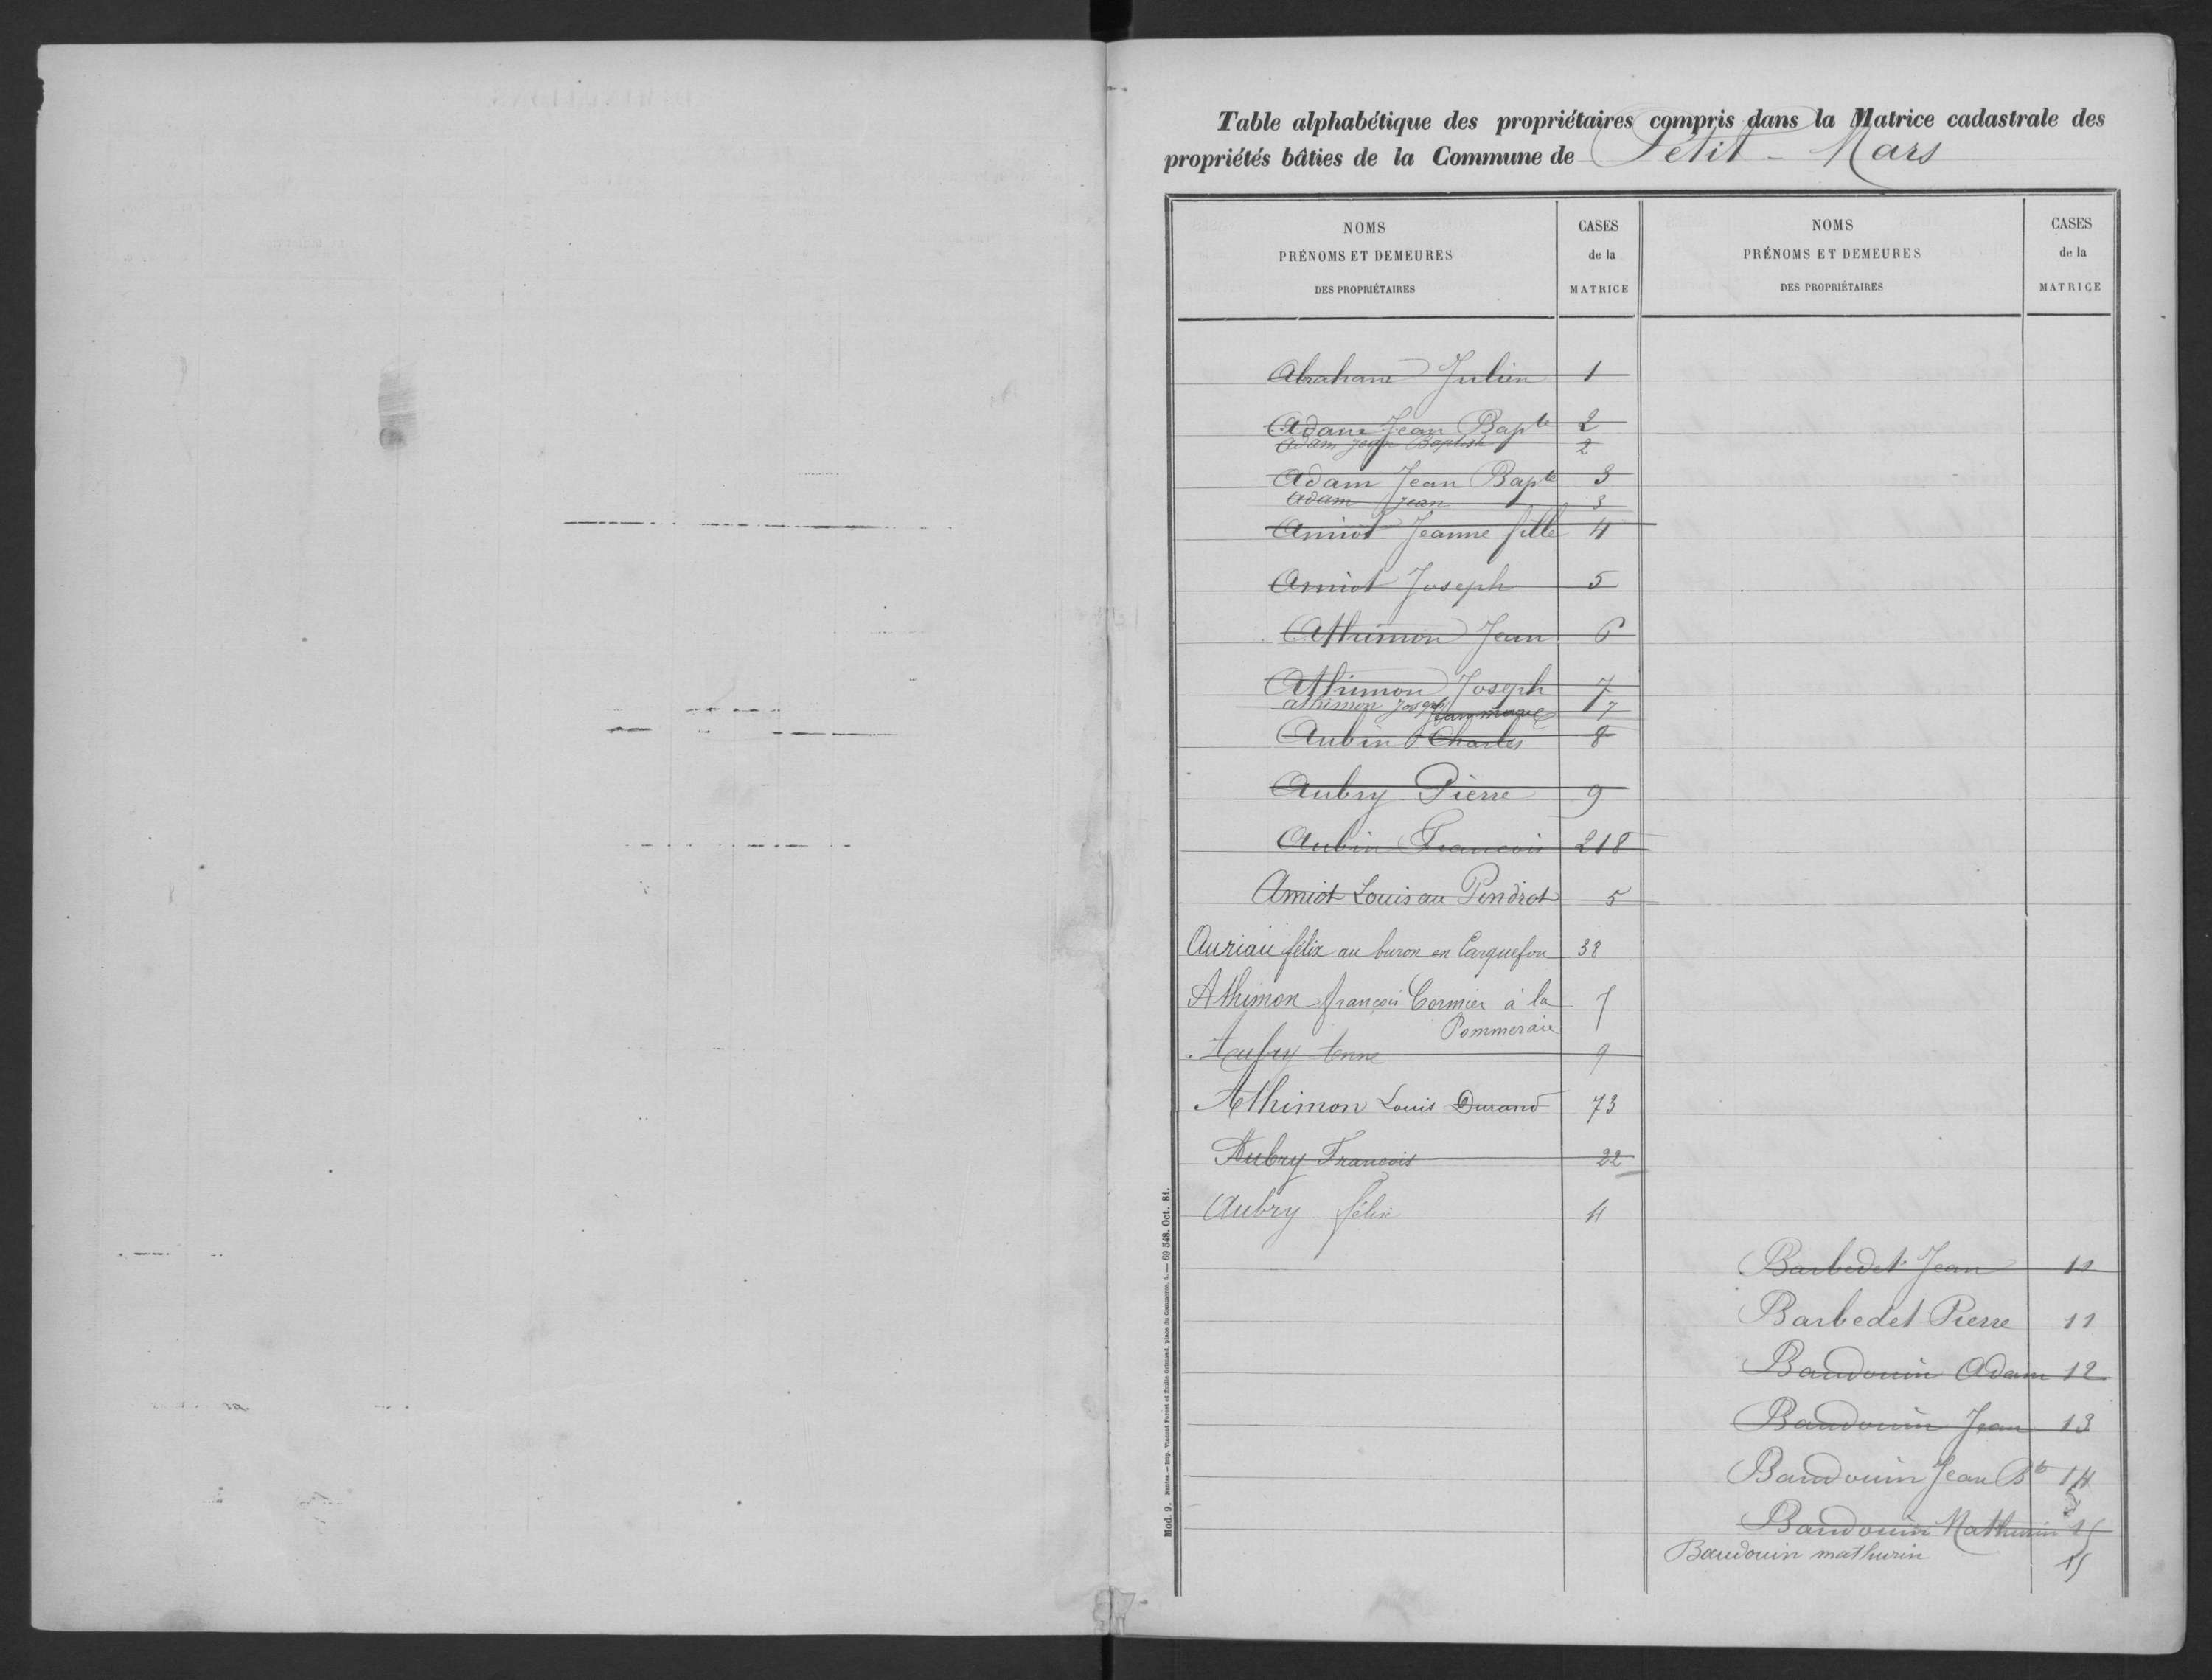 Table alphabétique des propriétaires compris dans la Matrice cadastrale des
propriétés bâties de la Commune de Petit-Mars
NOMS
PRÉNOMS ET DEMEURES
DES PROPRIÉTAIRES
CASES
de la
MATRICE
NOMS
PRÉNOMS ET DEMEURES
DES PROPRIÉTAIRES
CASES
de la
MATRICE
Abraham Julien 1
Adam Jean Bapte 2
Adam Jean Baptiste 2
Adam Jean Bapte 3
Adam Jean 3
Amiot Jeanne fille 4
Amiot Joseph 5
Athimon Jean 6
Athimon Joseph 7
athimon Joseph 7
Aubin Charles 8
Aubry Pierre 9
Aubin Francois 218
Amiot Louis au Pindrot 5
Auriau félix au buron en Carquefou 38
Athimon françois Cormier à la 7
Pommeraie
Aubry 9
Athimon Louis Durand 73
Aubry Francois 22
Aubry félix 4
Barbedet Jean 11
Barbedet Pierre 11
Baudouin Adam 12
Baudouin Jean 13
Baudouin Jean Bte 14
Baudouin Mathurin 15
Baudouin mathurin 15
Mod. 9. Nantes. — Imp. Vincent Forest et Émile Grimaud, place du Commerce, 4. — 69 548. Oct. 81.